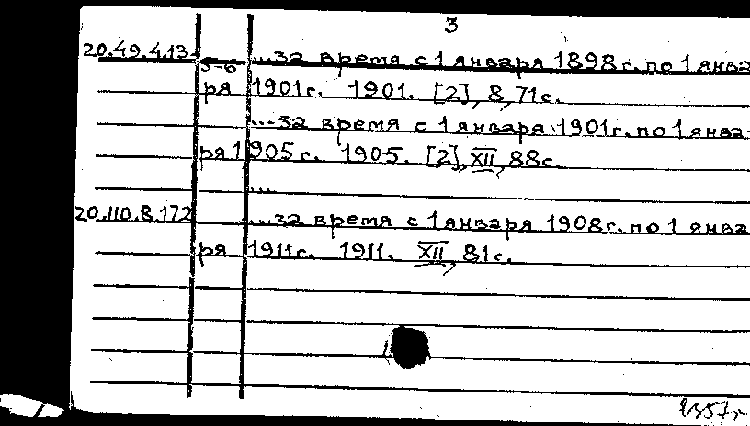 3
20.49.4.13- ...за время с 1 января 1898г. по 1 янва
5-6
ря 1901г. 1901. [2], 8, 71с.
...за время с 1 января 1901г. по 1 янва
ря 1905г. 1905. [2], XII, 88с.
...
20.110.8.172 ...за время с 1 января 1908г. по 1 янва
ря 1911г. 1911. XII, 81с.